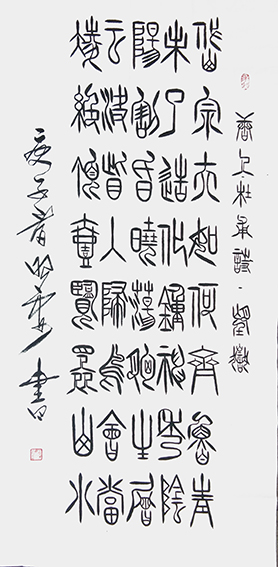 唐人杜甫詩・望嶽
岱宗夫如何齊魯青
未了造化鍾神秀陰
陽割昏曉蕩胸生層
云決眥入歸鳥會當
凌絕頂壹覽眾山小
庚子春書